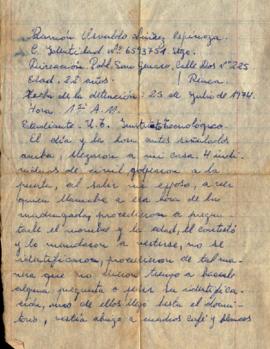 Ramón Osvaldo Núñez Espinoza.
C. Identidad Nº 6573751 Stgo.
Dirección Pobl. San Genaro, Calle Dos Nº 225
Edad. 22 años. / Renca.
Fecha de la detención: 25 de Julio de 1974.
Hora. A.M.
Estudiante. U.T.
El día y la hora antes señalados
arriba, llegaron a mi casa 4 indi-
viduos de civil golpearon a la
puerta, al salir mi esposo, a ver
quien llamaba a esa hora de la
madrugada, procedieron a pregun-
tarle el nombre y la edad, él contestó
y lo mandaron a vestirse, no se
identificaron, procedieron de tal ma-
nera que no dieron tiempo a hacerle
alguna pregunta o pedir su identifica-
ción, uno de ellos llegó hasta el dormi-
torio, vestía abrigo a cuadros café y blancos